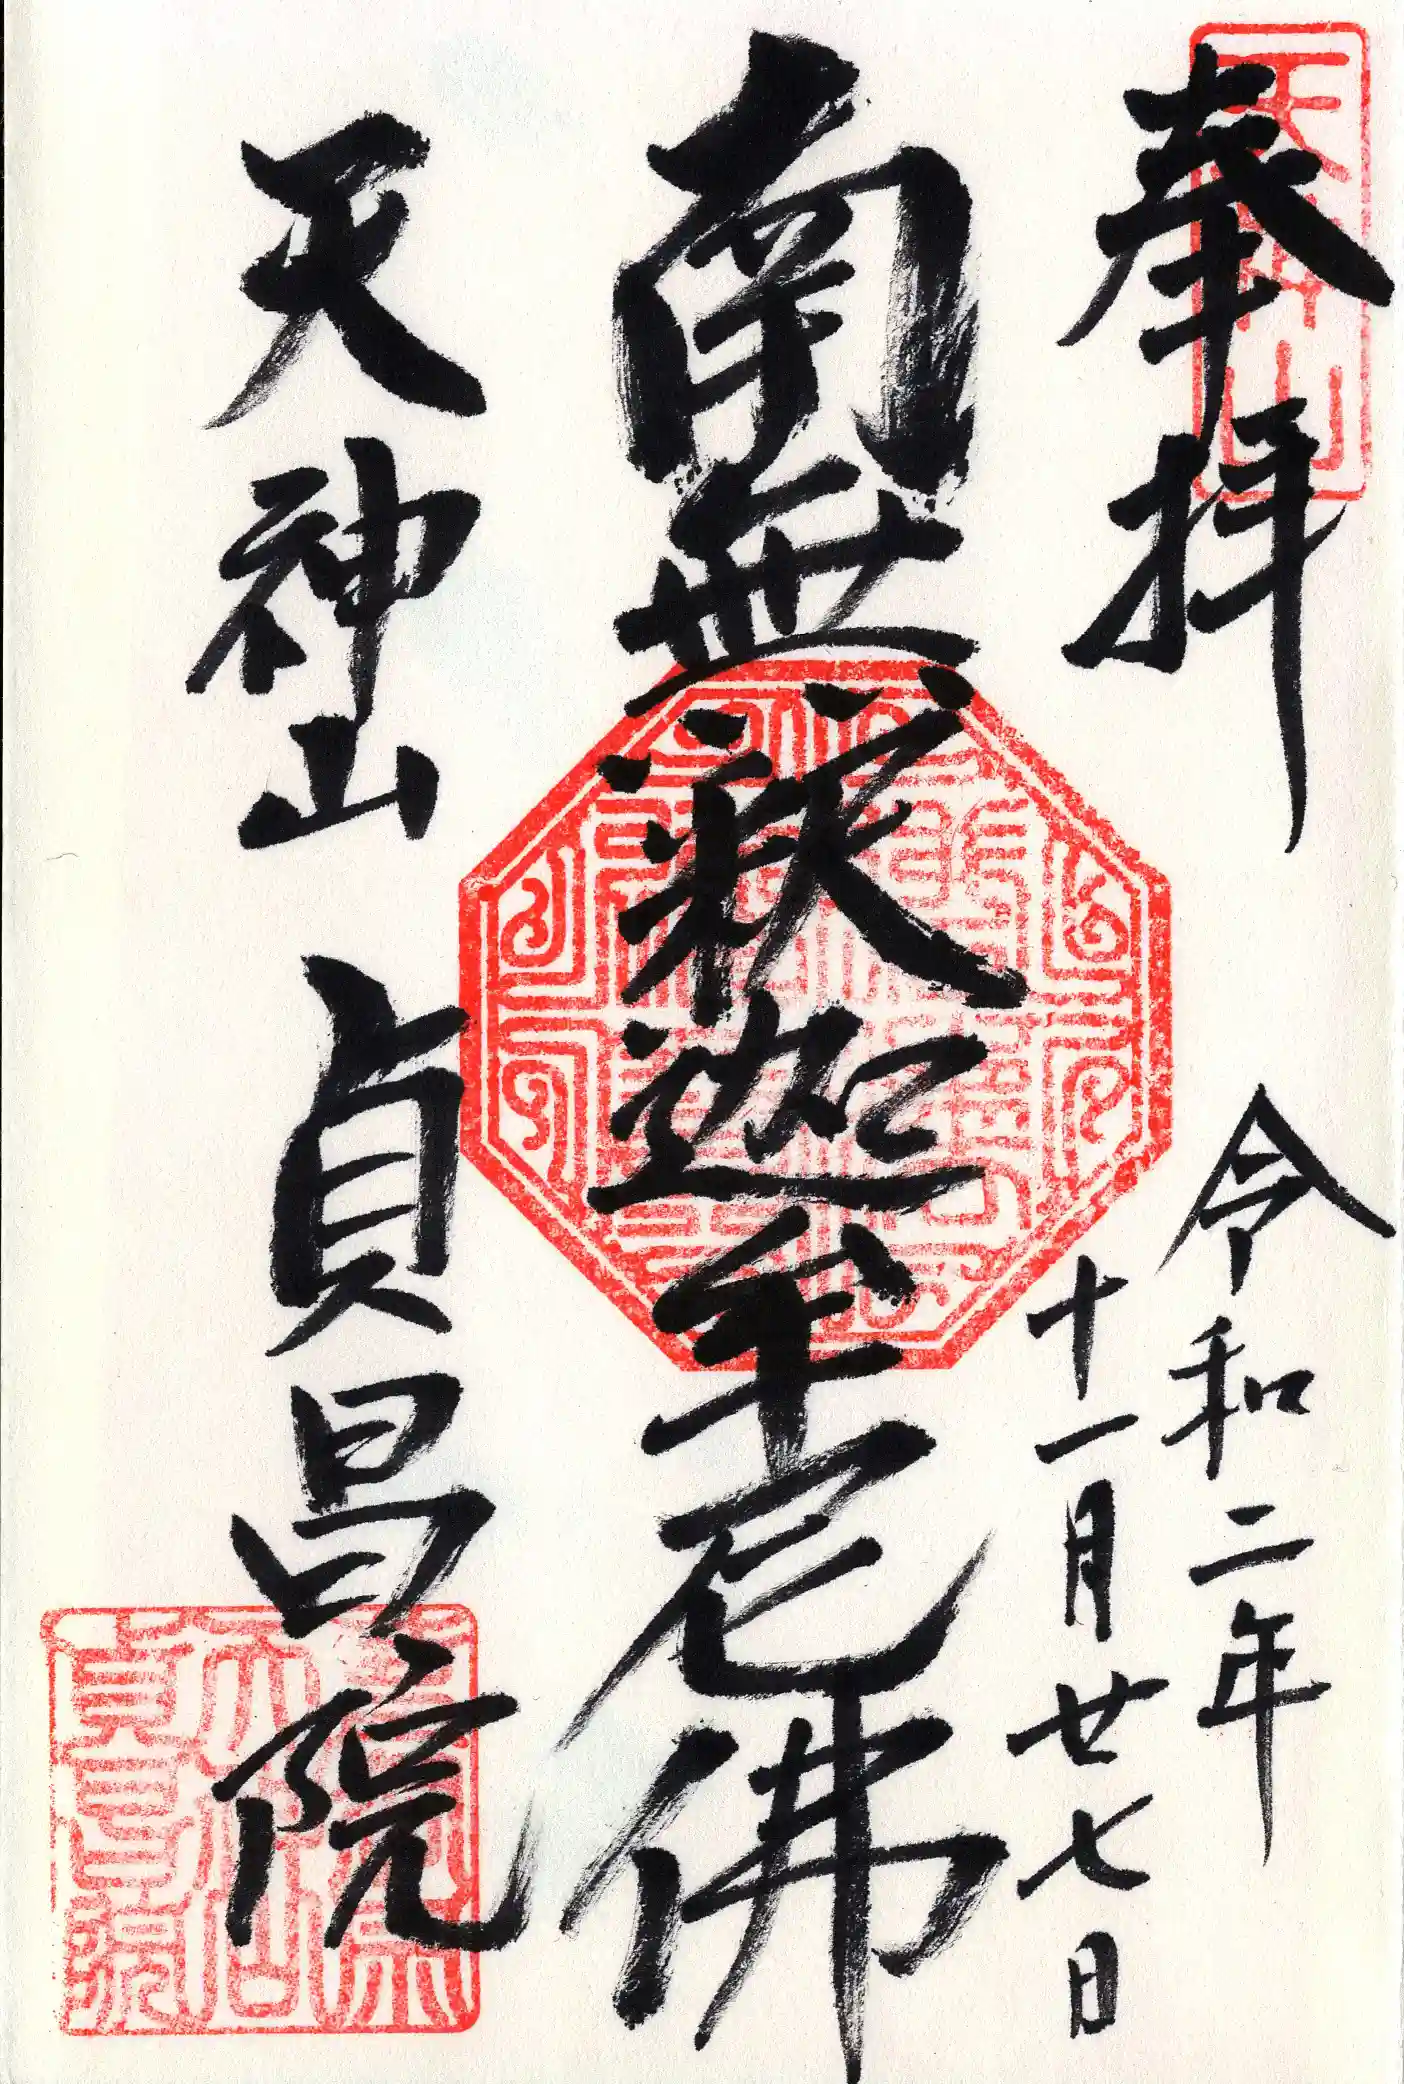 奉拝
令和二年
十一月廿七日
南無釈迦牟尼佛
天神山 貞昌院
天神山